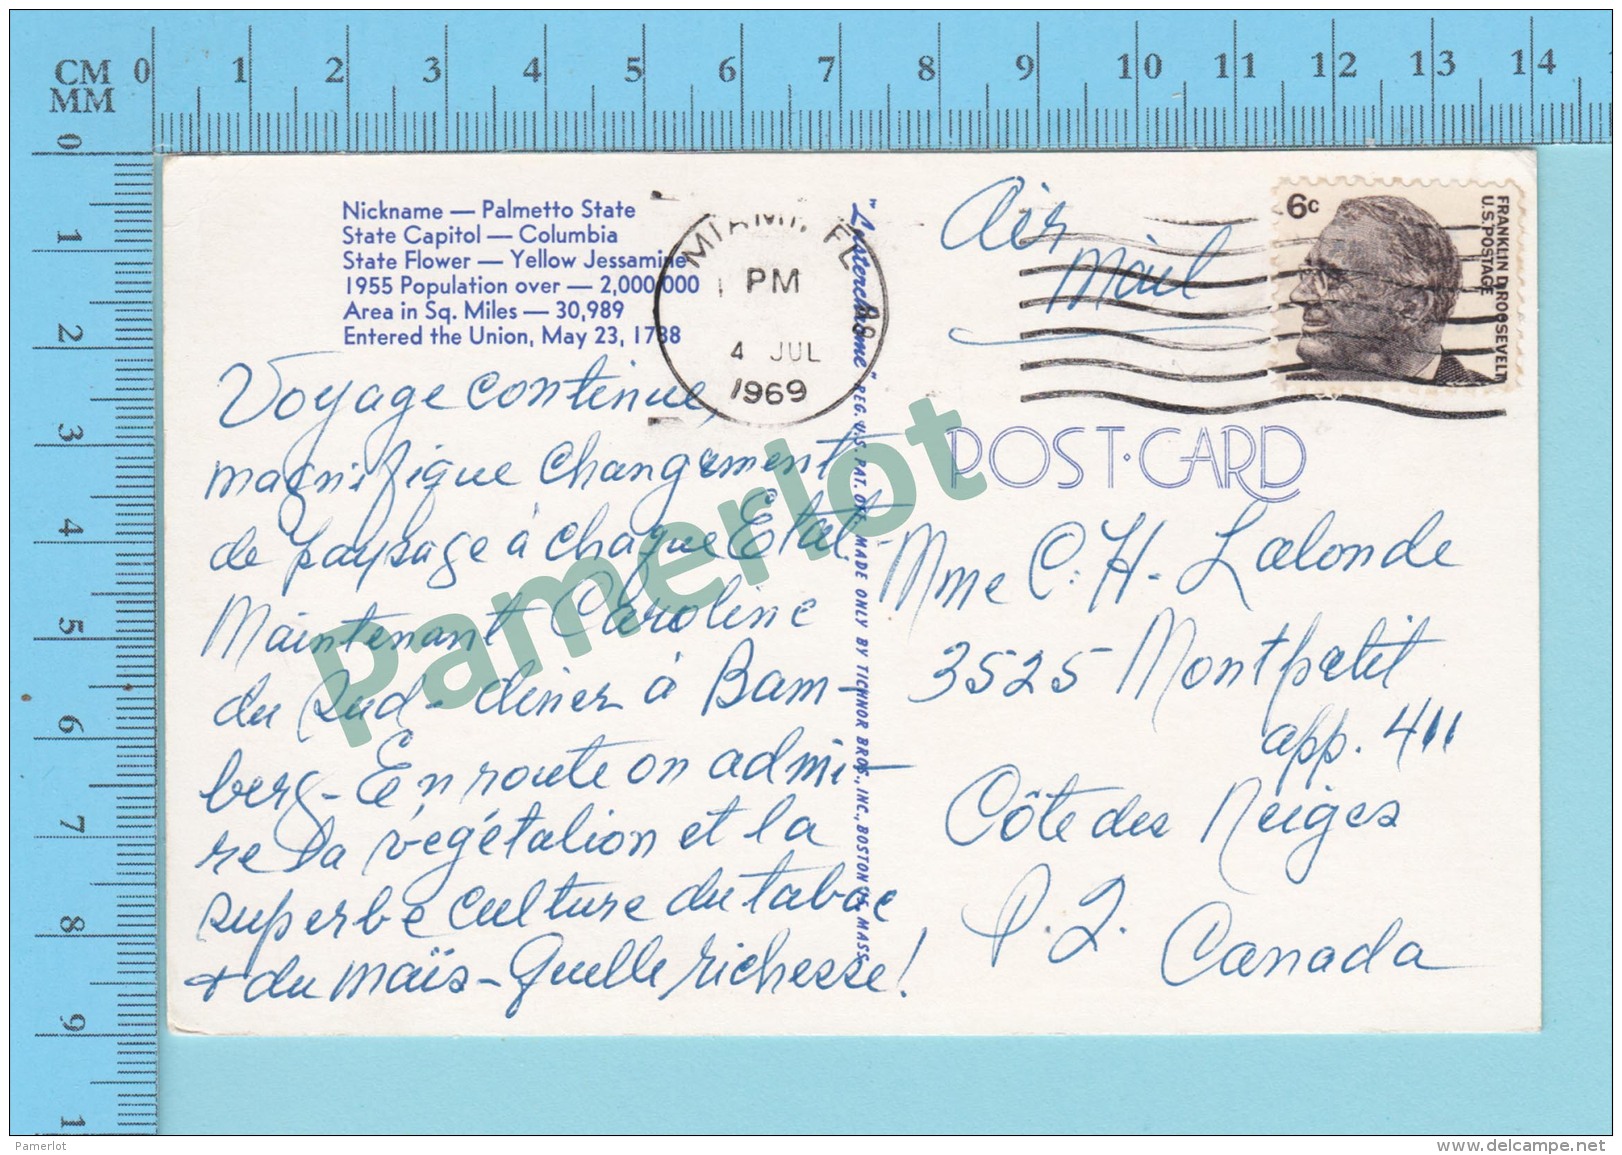 CM 0 1 2 3 4 5 6 7 8 9 10 11 12 13 14
MM
0
1
2
3
4
5
6
7
8
9
1
Nickname — Palmetto State
State Capitol — Columbia
State Flower — Yellow Jessamine
1955 Population over — 2,000,000
Area in Sq. Miles — 30,989
Entered the Union, May 23, 1788
MIAMI, FL
PM
4 JUL
1969
"Lusterchrome" REG. U.S. PAT. OFF. MADE ONLY BY TICHNOR BROS., INC., BOSTON 15, MASS.
Air
Mail
6c
FRANKLIN D. ROOSEVELT
U.S. POSTAGE
POST·CARD
Voyage continue,
magnifique changement
de paysage à chaque Etat.-
Maintenant Caroline
du Sud - diner à Bam-
berg - En route on admi-
re la végétation et la
superbe culture du tabac
+ du maïs - Quelle richesse!
Mme C. H. Lalonde
3525 Montpetit
app. 411
Côte des Neiges
P.Q.
Canada
Pamerlot
Pamerlot
www.delcampe.net